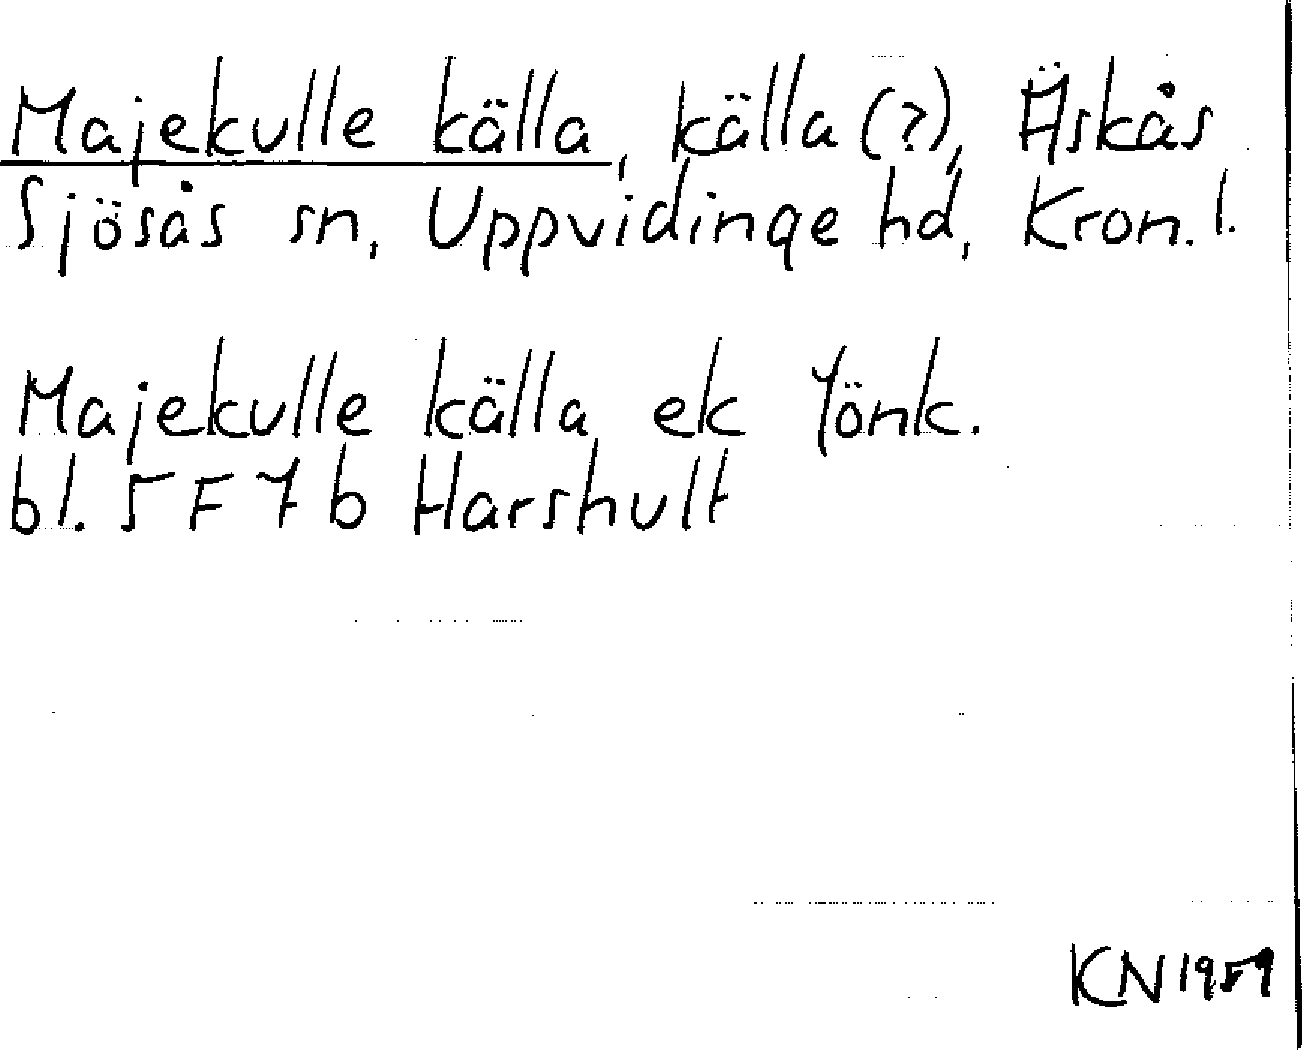 Majekulle källa, källa (?), Äskås
Sjösås sn, Uppvidinge hd, Kron. l.
Majekulle källa, ek Jönk.
bl. 5 F 7 b Harshult
KN 1959